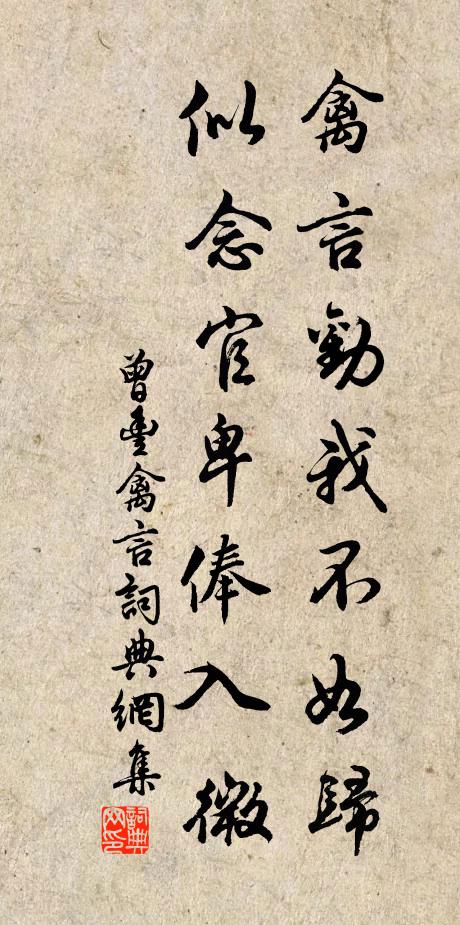 禽言勸我不如歸
似念官卑俸入微
曾豐禽言詞典網集
詞典網印